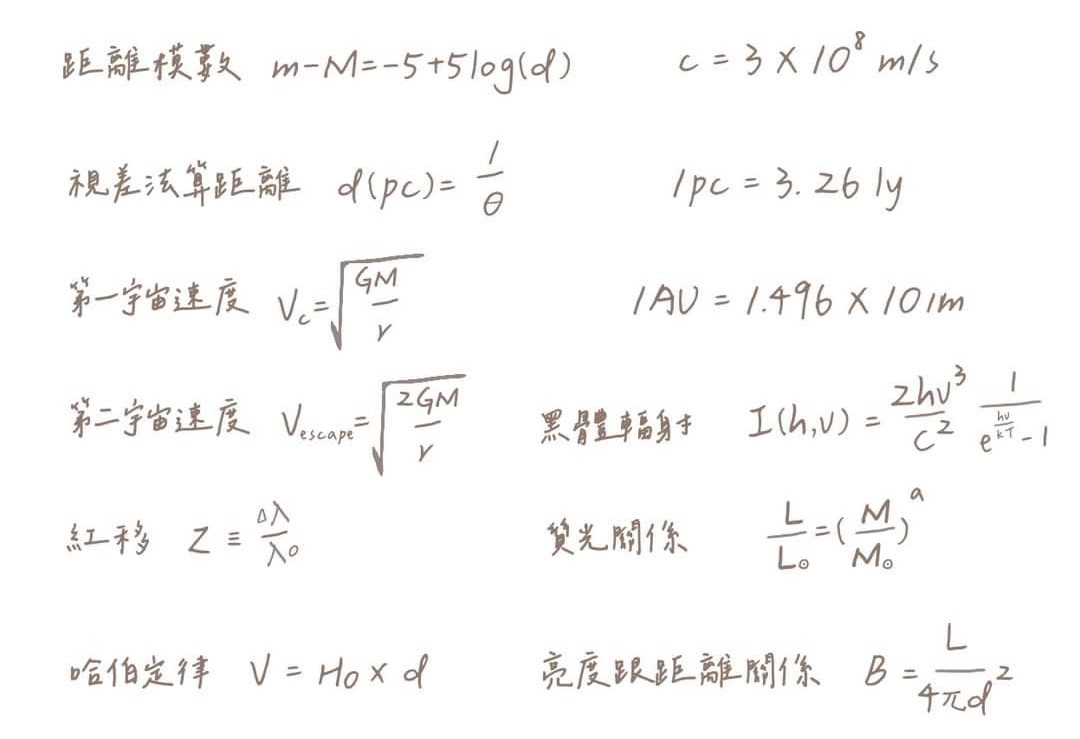 距離模數 m-M=-5+5log(d) c = 3 × 10⁸ m/s
視差法算距離 d(pc)= 1/θ 1pc = 3.26 ly
第一宇宙速度 Vc=√(GM/r) 1AU = 1.496 × 1011m
第二宇宙速度 Vescape=√(2GM/r) 黑體輻射 I(h,ν) = 2hν³/c² 1/(e^(hν/kT) - 1)
紅移 Z ≡ Δλ/λ₀ 質光關係 L/L⊙=(M/M⊙)^a
哈伯定律 V = H₀ × d 亮度跟距離關係 B = L/4πd²